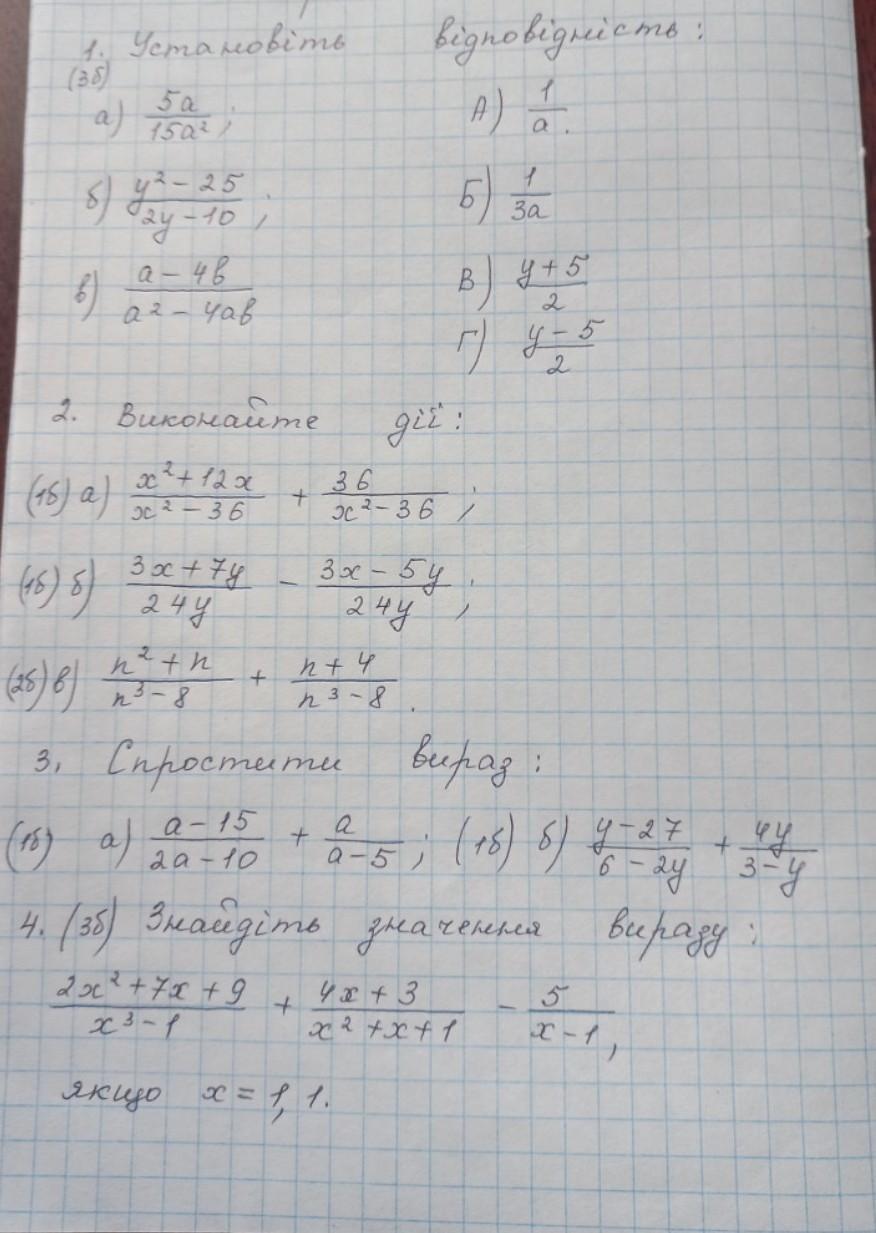 1. Установіть відповідність:
(3б)
а) 5a/15a²; А) 1/a.
б) y² - 25/2y - 10; Б) 1/3a
в) a - 4b/a² - 4ab В) y + 5/2
Г) y - 5/2
2. Виконайте дії:
(1б) а) x² + 12x/x² - 36 + 36/x² - 36;
(1б) б) 3x + 7y/24y - 3x - 5y/24y;
(2б) в) n² + n/n³ - 8 + n + 4/n³ - 8.
3. Спростити вираз:
(1б) а) a - 15/2a - 10 + a/a - 5; (1б) б) y - 27/6 - 2y + 4y/3 - y
4. (3б) Знайдіть значення виразу:
2x² + 7x + 9/x³ - 1 + 4x + 3/x² + x + 1 - 5/x - 1,
якщо x = 1,1.